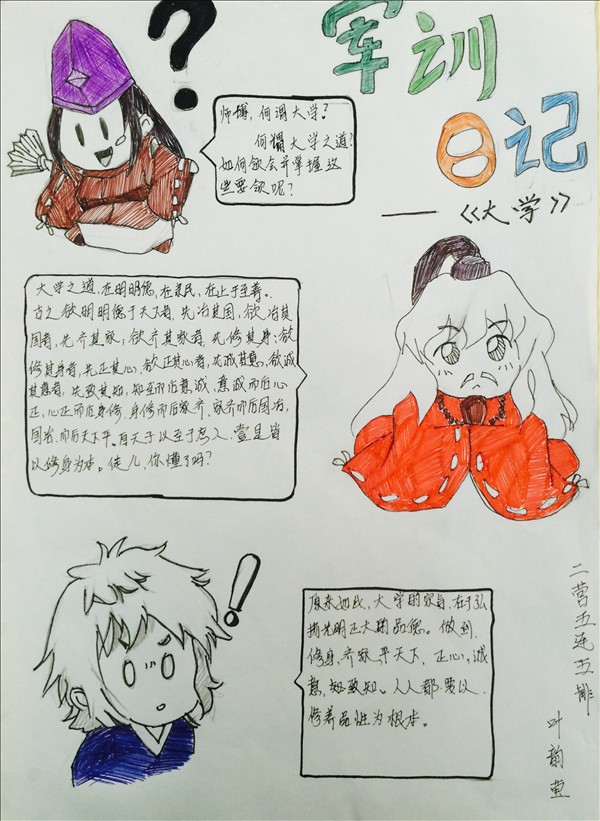 军训
日记
——《大学》
师傅,何谓大学?
何谓大学之道?
如何领会并掌握这
些要领呢?
大学之道,在明明德,在亲民,在止于至善。
古之欲明明德于天下者,先治其国,欲治其
国者,先齐其家,欲齐其家者,先修其身;欲
修其身者,先正其心,欲正其心者,先诚其意,欲诚
其意者,先致其知,知至而后意诚,意诚而后心
正,心正而后身修,身修而后家齐,家齐而后国治,
国治,而后天下平。自天子以至于庶人,壹是皆
以修身为本。徒儿,你懂了吗?
原来如此,大学的宗旨,在于弘
扬光明正大的品德。做到,
修身、齐家、平天下、正心,诚
意,知致知。人人都要以
修养品性为根本。
二营五连五排
叶韵萱